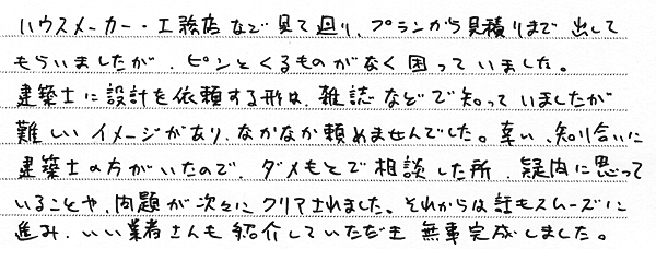 ハウスメーカー・工務店などで見て回り、プランから見積りまで出して
もらいましたが、ピンとくるものがなく困っていました。
建築士に設計を依頼する形は、雑誌などで知っていましたが
難しいイメージがあり、なかなか頼めませんでした。幸い、知り合いに
建築士の方がいたので、ダメもとで相談した所、疑問に思って
いることや、問題が次々にクリアされました。それからは話もスムーズに
進み、いい業者さんも紹介していただき無事完成しました。